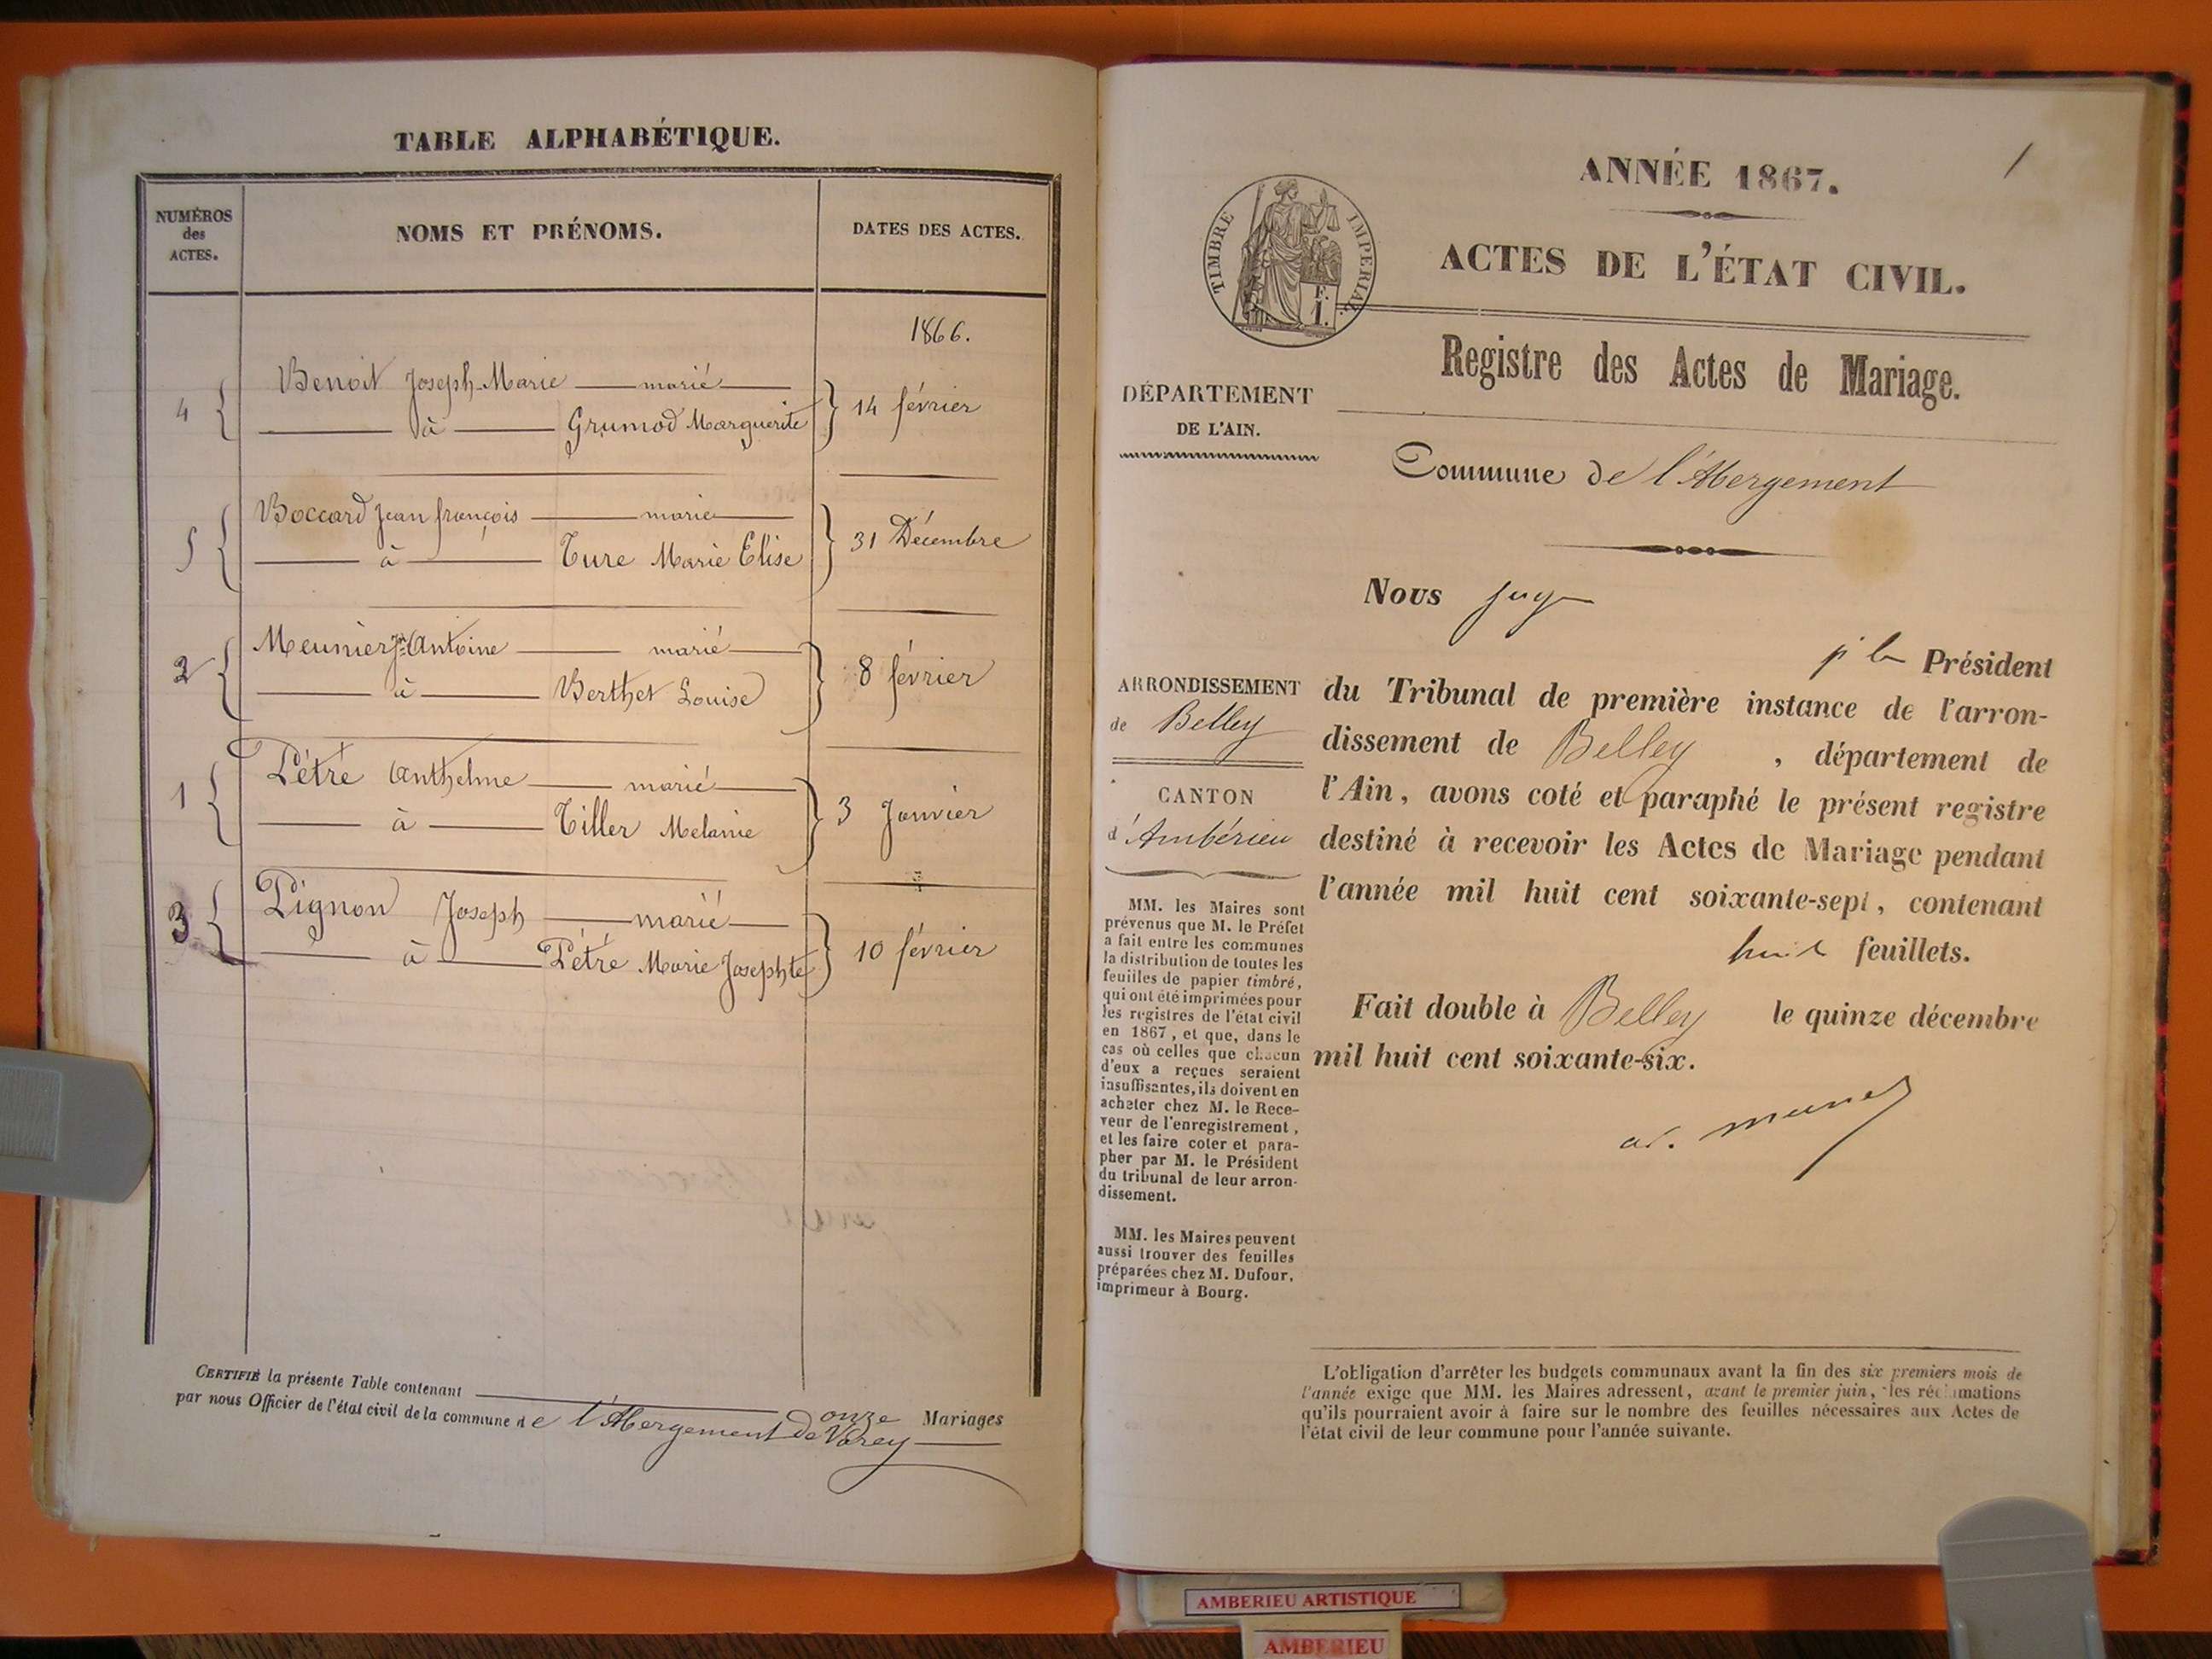 TABLE ALPHABÉTIQUE.
NUMÉROS
des
ACTES.
NOMS ET PRÉNOMS.
DATES DES ACTES.
1866.
Benoit Joseph-Marie marié
4
14 février
à Grumod Marguerite
Boccard Jean françois marié
5
31 Décembre
à Ture Marie Elise
Meunier Jn Antoine marié
2
8 février
à Berthet Louise
Pétré Anthelme marié
1
3 Janvier
à Tiller Melanie
Pignon Joseph marié
3
10 février
à Pétré Marie Josephte
CERTIFIÉ la présente Table contenant onze Mariages
par nous Officier de l'état civil de la commune de l'Abergement de Varey
1
ANNÉE 1867.
TIMBRE IMPERIAL
F.
1.
ACTES DE L'ÉTAT CIVIL.
Registre des Actes de Mariage.
DÉPARTEMENT
DE L'AIN.
Commune de l'Abergement
Nous juge
Président
ARRONDISSEMENT
de Belley
CANTON
d'Ambérieu
du Tribunal de première instance de l'arron-
dissement de Belley, département de
l'Ain, avons coté et paraphé le présent registre
destiné à recevoir les Actes de Mariage pendant
l'année mil huit cent soixante-sept, contenant
huit feuillets.
Fait double à Belley le quinze décembre
mil huit cent soixante-six.
MM. les Maires sont
prévenus que M. le Préfet
a fait entre les communes
la distribution de toutes les
feuilles de papier timbré,
qui ont été imprimées pour
les registres de l'état civil
en 1867, et que, dans le
cas où celles que chacun
d'eux a reçues seraient
insuffisantes, ils doivent en
acheter chez M. le Rece-
veur de l'enregistrement,
et les faire coter et para-
pher par M. le Président
du tribunal de leur arron-
dissement.
MM. les Maires peuvent
aussi trouver des feuilles
préparées chez M. Dufour,
imprimeur à Bourg.
L'obligation d'arrêter les budgets communaux avant la fin des six premiers mois de
l'année exige que MM. les Maires adressent, avant le premier juin, les réclamations
qu'ils pourraient avoir à faire sur le nombre des feuilles nécessaires aux Actes de
l'état civil de leur commune pour l'année suivante.
AMBERIEU ARTISTIQUE
AMBERIEU